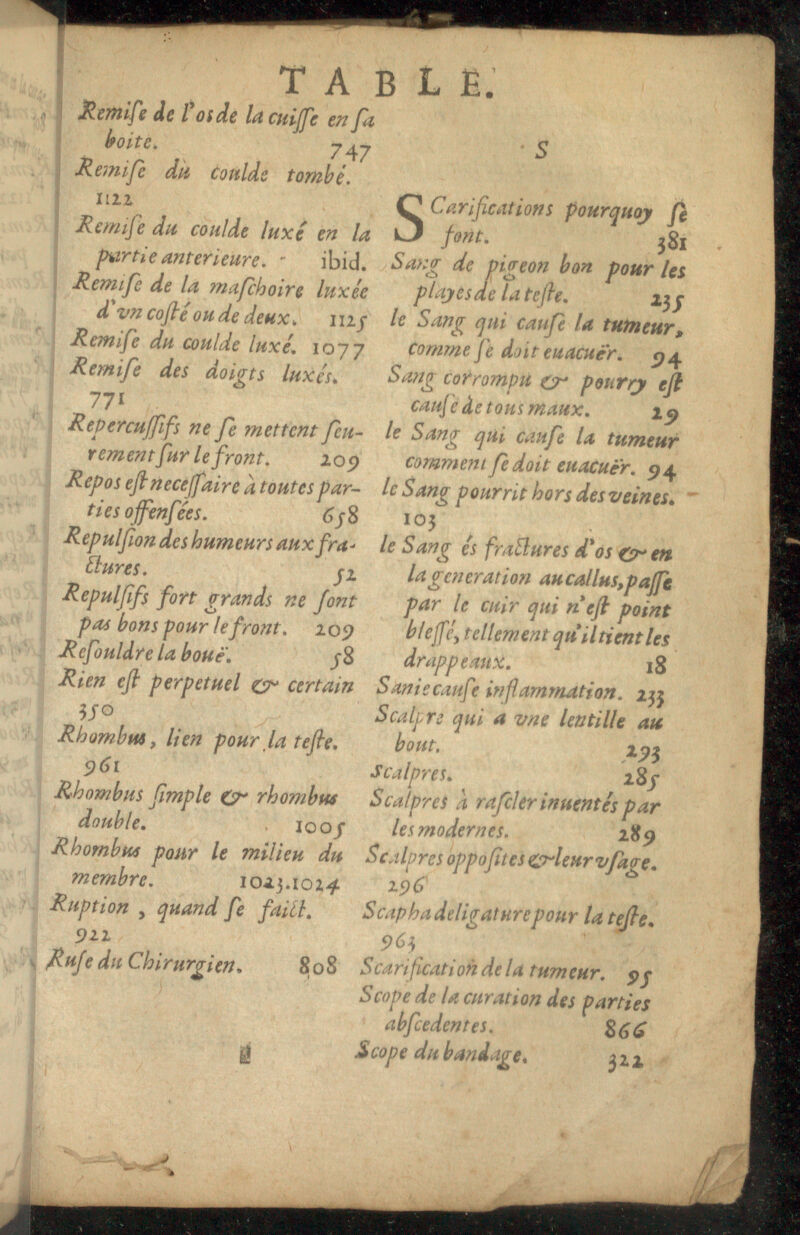 TABLE.
Remiſe de l'os de la cuiſſe en ſa
boite. 747
Remiſe du coulde tombé.
1122
Remiſe du coulde luxé en la
partie anterieure. - ibid.
Remiſe de la maſchoire luxée
d'vn coſté ou de deux. 1125
Remiſe du coulde luxé. 1077
Remiſe des doigts luxés.
771
Repercuſſifs ne ſe mettent ſeu-
rement ſur le front. 209
Repos eſt neceſſaire à toutes par-
ties offenſées. 658
Repulſion des humeurs aux fra-
ctures. 52
Repulſifs fort grands ne ſont
pas bons pour le front. 209
Reſouldre la bouë. 58
Rien eſt perpetuel & certain
350
Rhombus, lien pour la teſte.
961
Rhombus ſimple & rhombus
double. 1005
Rhombus pour le milieu du
membre. 1023.1024
Ruption , quand ſe faict.
922
Ruſe du Chirurgien. 808
S
SCarifications pourquoy ſe
font. 381
Sang de pigeon bon pour les
playes de la teſte. 235
le Sang qui cauſe la tumeur,
comme ſe doit euacuër. 94
Sang corrompu & pourry eſt
cauſe de tous maux. 29
le Sang qui cauſe la tumeur
comment ſe doit euacuër. 94
le Sang pourrit hors des veines.
103
le Sang és fractures d'os & en
la generation au callus, paſſe
par le cuir qui n'eſt point
bleſſé, tellement qu'il tient les
drappeaux. 18
Sanie cauſe inflammation. 233
Scalpre qui a vne lentille au
bout. 293
Scalpres. 285
Scalpres à raſcler inuentés par
les modernes. 289
Scalpres oppoſites & leur vſage.
296
Scapha deligature pour la teſte.
963
Scarification de la tumeur. 95
Scope de la curation des parties
abſcedentes. 866
Scope du bandage. 322